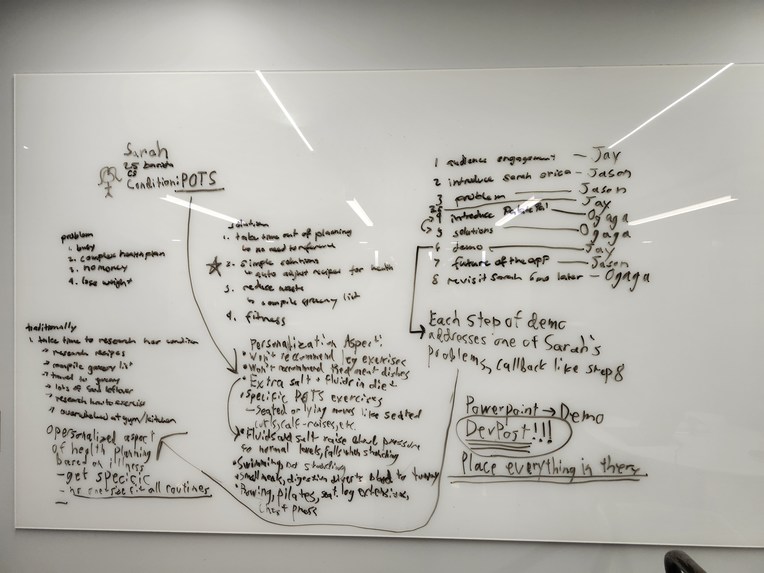 Sarah
25
Condition: POTS
problem
1. busy
2. complex health plan
3. no money
4. lose weight
solution
1. take time out of planning
↳ no need to
2. simple solutions
↳ auto recipes for health
3. reduce waste
↳ compile grocery list
4. fitness
traditionally
1. take time to research her condition
↳ research recipes
↳ compile grocery list
↳ travel to grocery
↳ lots of food leftover
↳ research how to exercise
↳ overwhelmed at gym/kitchen
personalized aspect
of health planning
based on illness
- get specific
- no one size fit all routines
Personalization Aspect:
• Won't recommend leg exercises
• Won't recommend dishes
• Extra salt + fluids in diet
• Specific POTS exercises
- Seated or lying moves like seated
curls, calf-raises, etc.
• Fluids and salt raise blood pressure
to normal levels, falls with standing
• Swimming, no standing
• Small meals, digestion diverts blood to tummy
• Rowing, pilates, leg extensions,
chest press
1 audience engagement — Jay
2 introduce Sarah — Jason
3 problem — Jason
Jay
4 introduce — Ogaga
5 solutions — Ogaga
6 demo — Jay
7 future of the app — Jason
8 revisit Sarah 6mo later — Ogaga
Each step of demo
addresses one of Sarah's
problems, callback like step 8
Powerpoint → Demo
DevPost!!!
Place everything in there